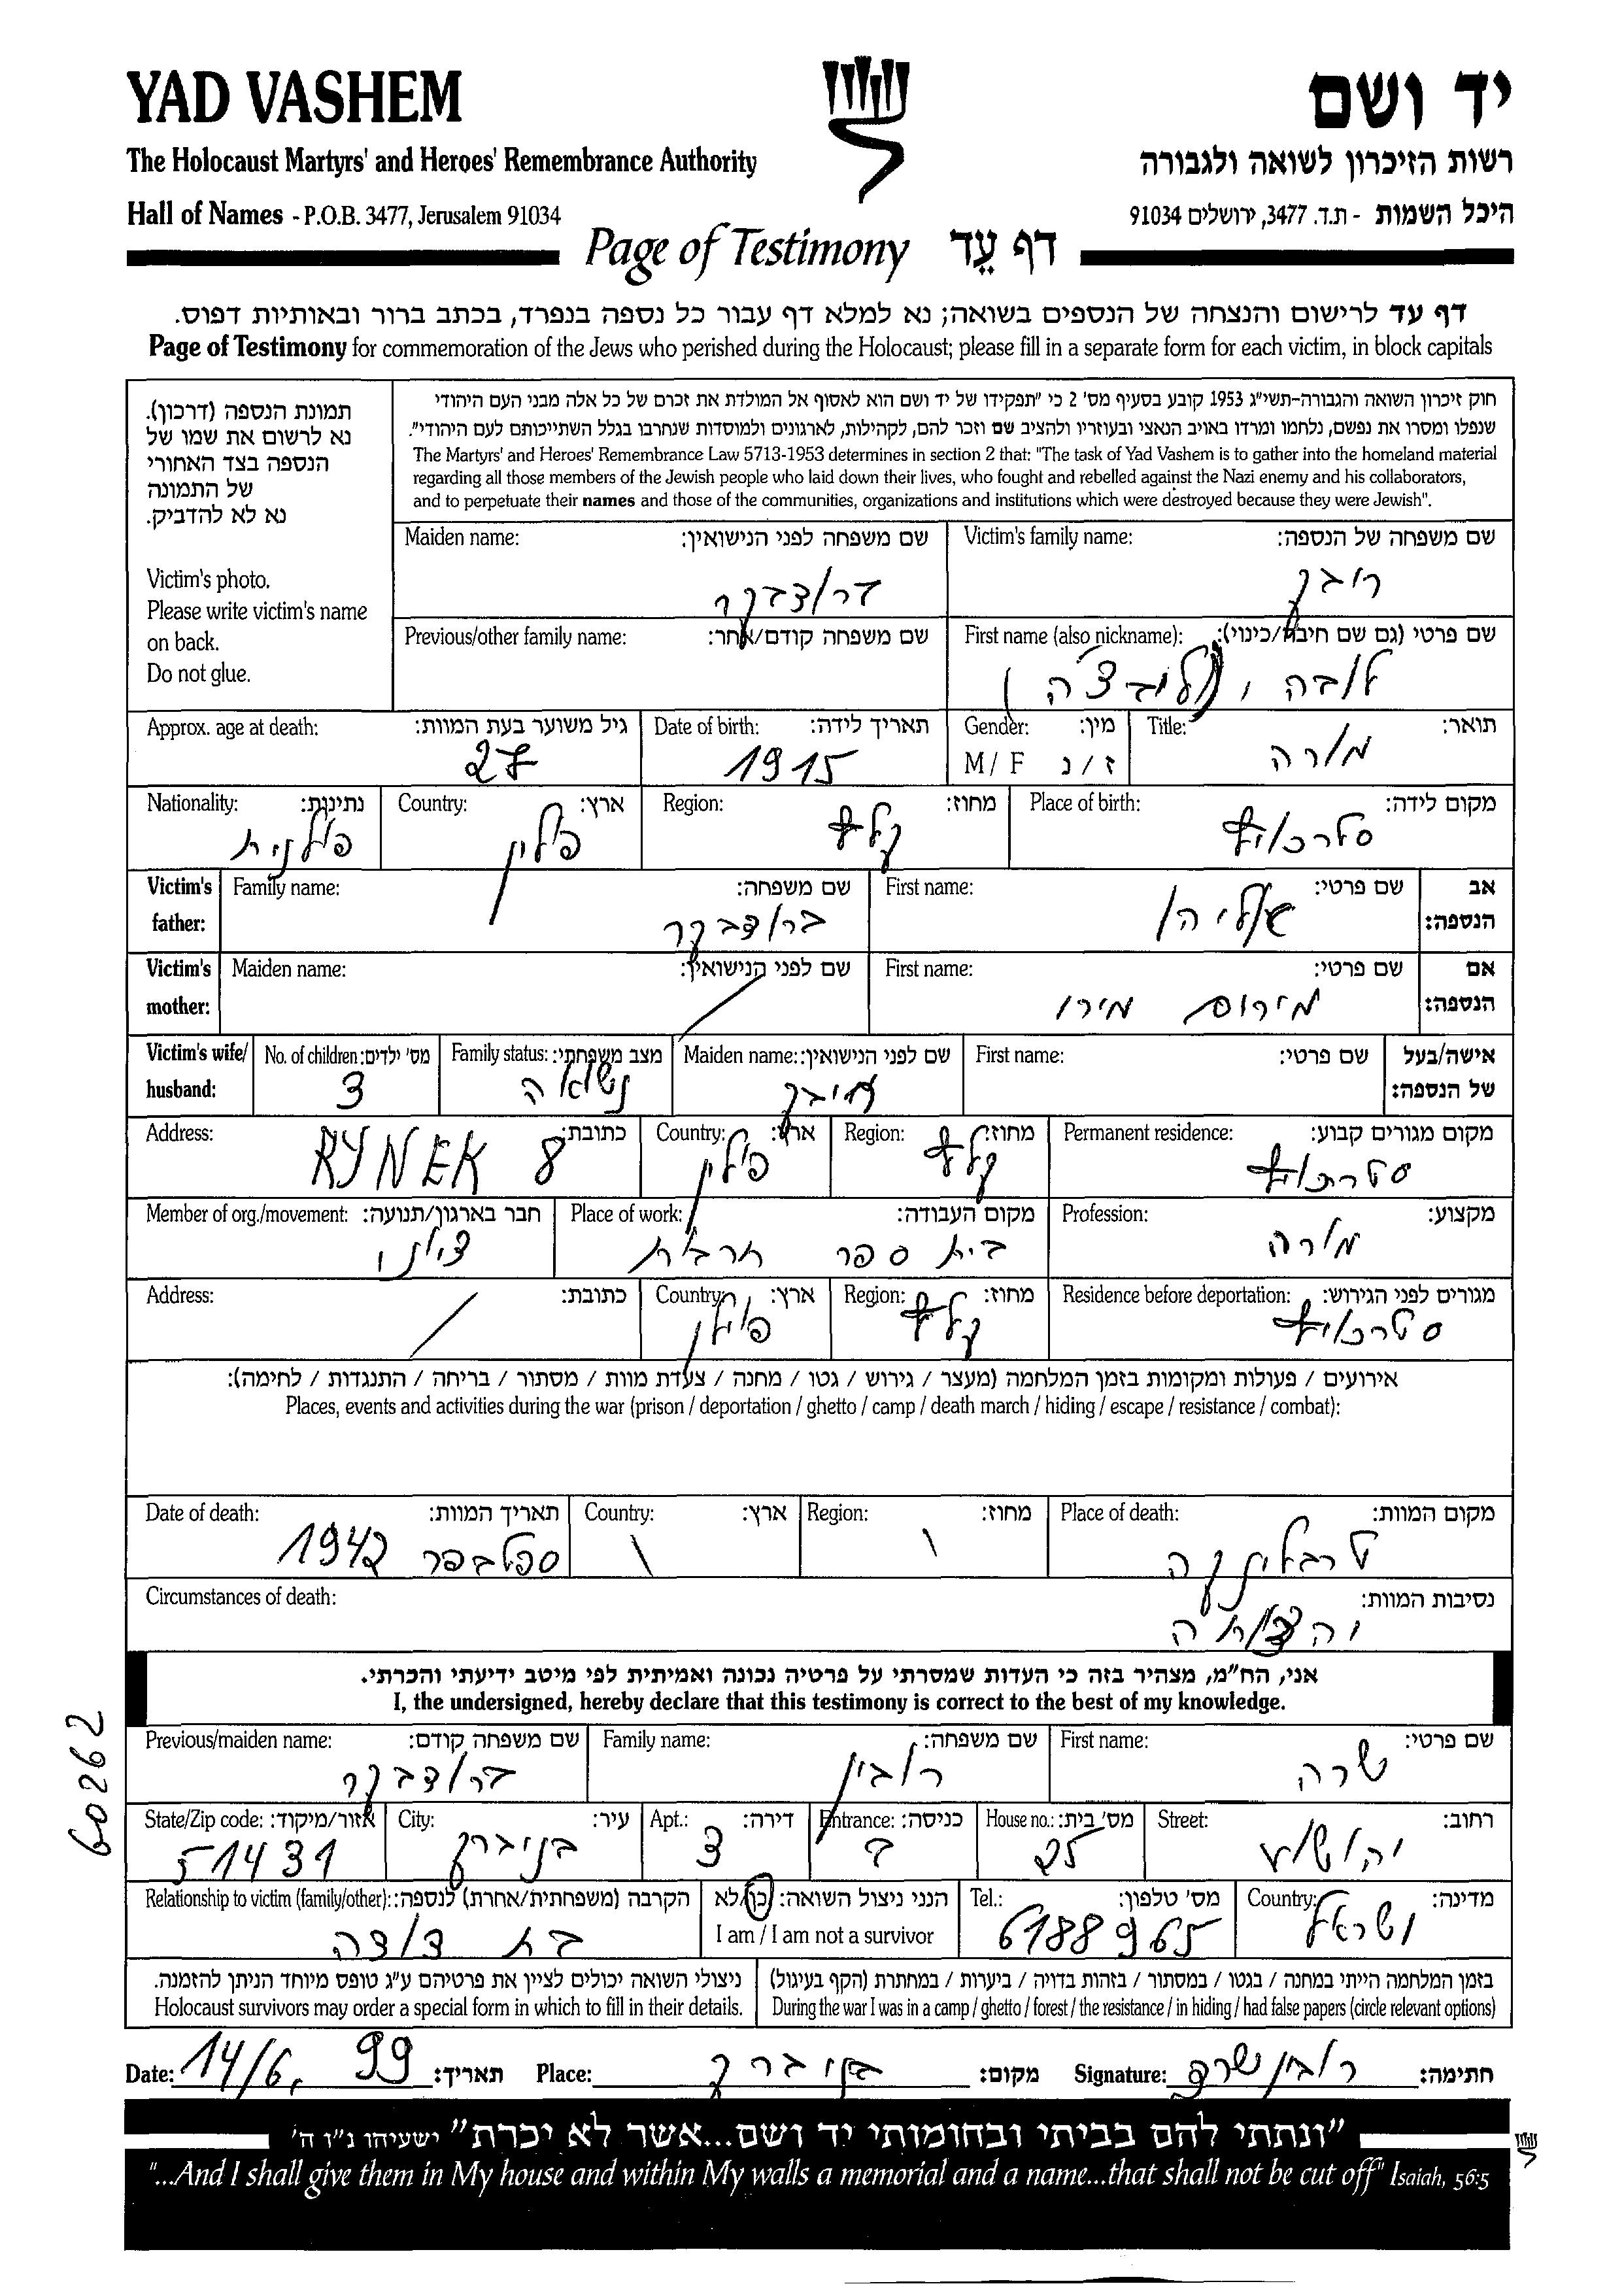 YAD VASHEM
יד ושם
The Holocaust Martyrs' and Heroes' Remembrance Authority
רשות הזיכרון לשואה ולגבורה
Hall of Names - P.O.B. 3477, Jerusalem 91034
היכל השמות - ת.ד. 3477, ירושלים 91034
Page of Testimony דף עֵד
דף עד לרישום והנצחה של הנספים בשואה; נא למלא דף עבור כל נספה בנפרד, בכתב ברור ובאותיות דפוס.
Page of Testimony for commemoration of the Jews who perished during the Holocaust; please fill in a separate form for each victim, in block capitals
תמונת הנספה (דרכון).
נא לרשום את שמו של
הנספה בצד האחורי
של התמונה
נא לא להדביק.
Victim's photo.
Please write victim's name
on back.
Do not glue.
חוק זיכרון השואה והגבורה-תשי"ג 1953 קובע בסעיף מס' 2 כי "תפקידו של יד ושם הוא לאסוף אל המולדת את זכרם של כל אלה מבני העם היהודי
שנפלו ומסרו את נפשם, נלחמו ומרדו באויב הנאצי ובעוזריו ולהציב שם וזכר להם, לקהילות, לארגונים ולמוסדות שנחרבו בגלל השתייכותם לעם היהודי".
The Martyrs' and Heroes' Remembrance Law 5713-1953 determines in section 2 that: "The task of Yad Vashem is to gather into the homeland material
regarding all those members of the Jewish people who laid down their lives, who fought and rebelled against the Nazi enemy and his collaborators,
and to perpetuate their names and those of the communities, organizations and institutions which were destroyed because they were Jewish".
Victim's family name: שם משפחה של הנספה:
רובין
Maiden name: שם משפחה לפני הנישואין:
ברודבקר
First name (also nickname): שם פרטי (גם שם חיבה/כינוי):
לובה, (לובצ'ה)
Previous/other family name: שם משפחה קודם/אחר:
Title: תואר:
מורה
Gender: מין:
M / F ז / נ
Date of birth: תאריך לידה:
1915
Approx. age at death: גיל משוער בעת המוות:
27
Place of birth: מקום לידה:
Region: מחוז:
קלץ
Country: ארץ:
פולין
Nationality: נתינות:
פולנית
Victim's father: אב הנספה:
First name: שם פרטי:
אליהו
Family name: שם משפחה:
ברודבקר
Victim's mother: אם הנספה:
First name: שם פרטי:
מירו
Maiden name: שם לפני הנישואין:
Victim's wife/ husband: אישה/בעל של הנספה:
First name: שם פרטי:
Maiden name: שם לפני הנישואין:
רובין
Family status: מצב משפחתי:
נשואה
No. of children: מס' ילדים:
3
Permanent residence: מקום מגורים קבוע:
Region: מחוז:
קלץ
Country: ארץ:
פולין
Address: כתובת:
RYNEK 8
Profession: מקצוע:
מורה
Place of work: מקום העבודה:
בית ספר תרבות
Member of org./movement: חבר בארגון/תנועה:
ציוני
Residence before deportation: מגורים לפני הגירוש:
Region: מחוז:
קלץ
Country: ארץ:
פולין
Address: כתובת:
אירועים / פעולות ומקומות בזמן המלחמה (מעצר / גירוש / גטו / מחנה / צעדת מוות / מסתור / בריחה / התנגדות / לחימה):
Places, events and activities during the war (prison / deportation / ghetto / camp / death march / hiding / escape / resistance / combat):
Place of death: מקום המוות:
טרבלינקה
Region: מחוז:
Country: ארץ:
Date of death: תאריך המוות:
ספטבפר 1942
Circumstances of death: נסיבות המוות:
אני, הח"מ, מצהיר בזה כי העדות שמסרתי על פרטיה נכונה ואמיתית לפי מיטב ידיעתי והכרתי.
I, the undersigned, hereby declare that this testimony is correct to the best of my knowledge.
60262
First name: שם פרטי:
שרה
Family name: שם משפחה:
רובין
Previous/maiden name: שם משפחה קודם:
ברודבקר
Street: רחוב:
יהושע
House no.: מס' בית:
25
Entrance: כניסה:
ב
Apt.: דירה:
3
City: עיר:
בני ברק
State/Zip code: אזור/מיקוד:
51431
Country: מדינה:
ישראל
Tel.: מס' טלפון:
6188965
הנני ניצול השואה: כן/לא
I am / I am not a survivor
Relationship to victim (family/other): הקרבה (משפחתית/אחרת) לנספה:
בת דודה
בזמן המלחמה הייתי במחנה / בגטו / במסתור / בזהות בדויה / ביערות / במחתרת (הקף בעיגול)
During the war I was in a camp / ghetto / forest / the resistance / in hiding / had false papers (circle relevant options)
ניצולי השואה יכולים לציין את פרטיהם ע"ג טופס מיוחד הניתן להזמנה.
Holocaust survivors may order a special form in which to fill in their details.
Date: 14/6, 99 תאריך: Place: בני ברק מקום: Signature: רובין שרה חתימה:
"ונתתי להם בביתי ובחומותי יד ושם...אשר לא יכרת" ישעיהו נ"ו ה'
"...And I shall give them in My house and within My walls a memorial and a name...that shall not be cut off" Isaiah, 56:5